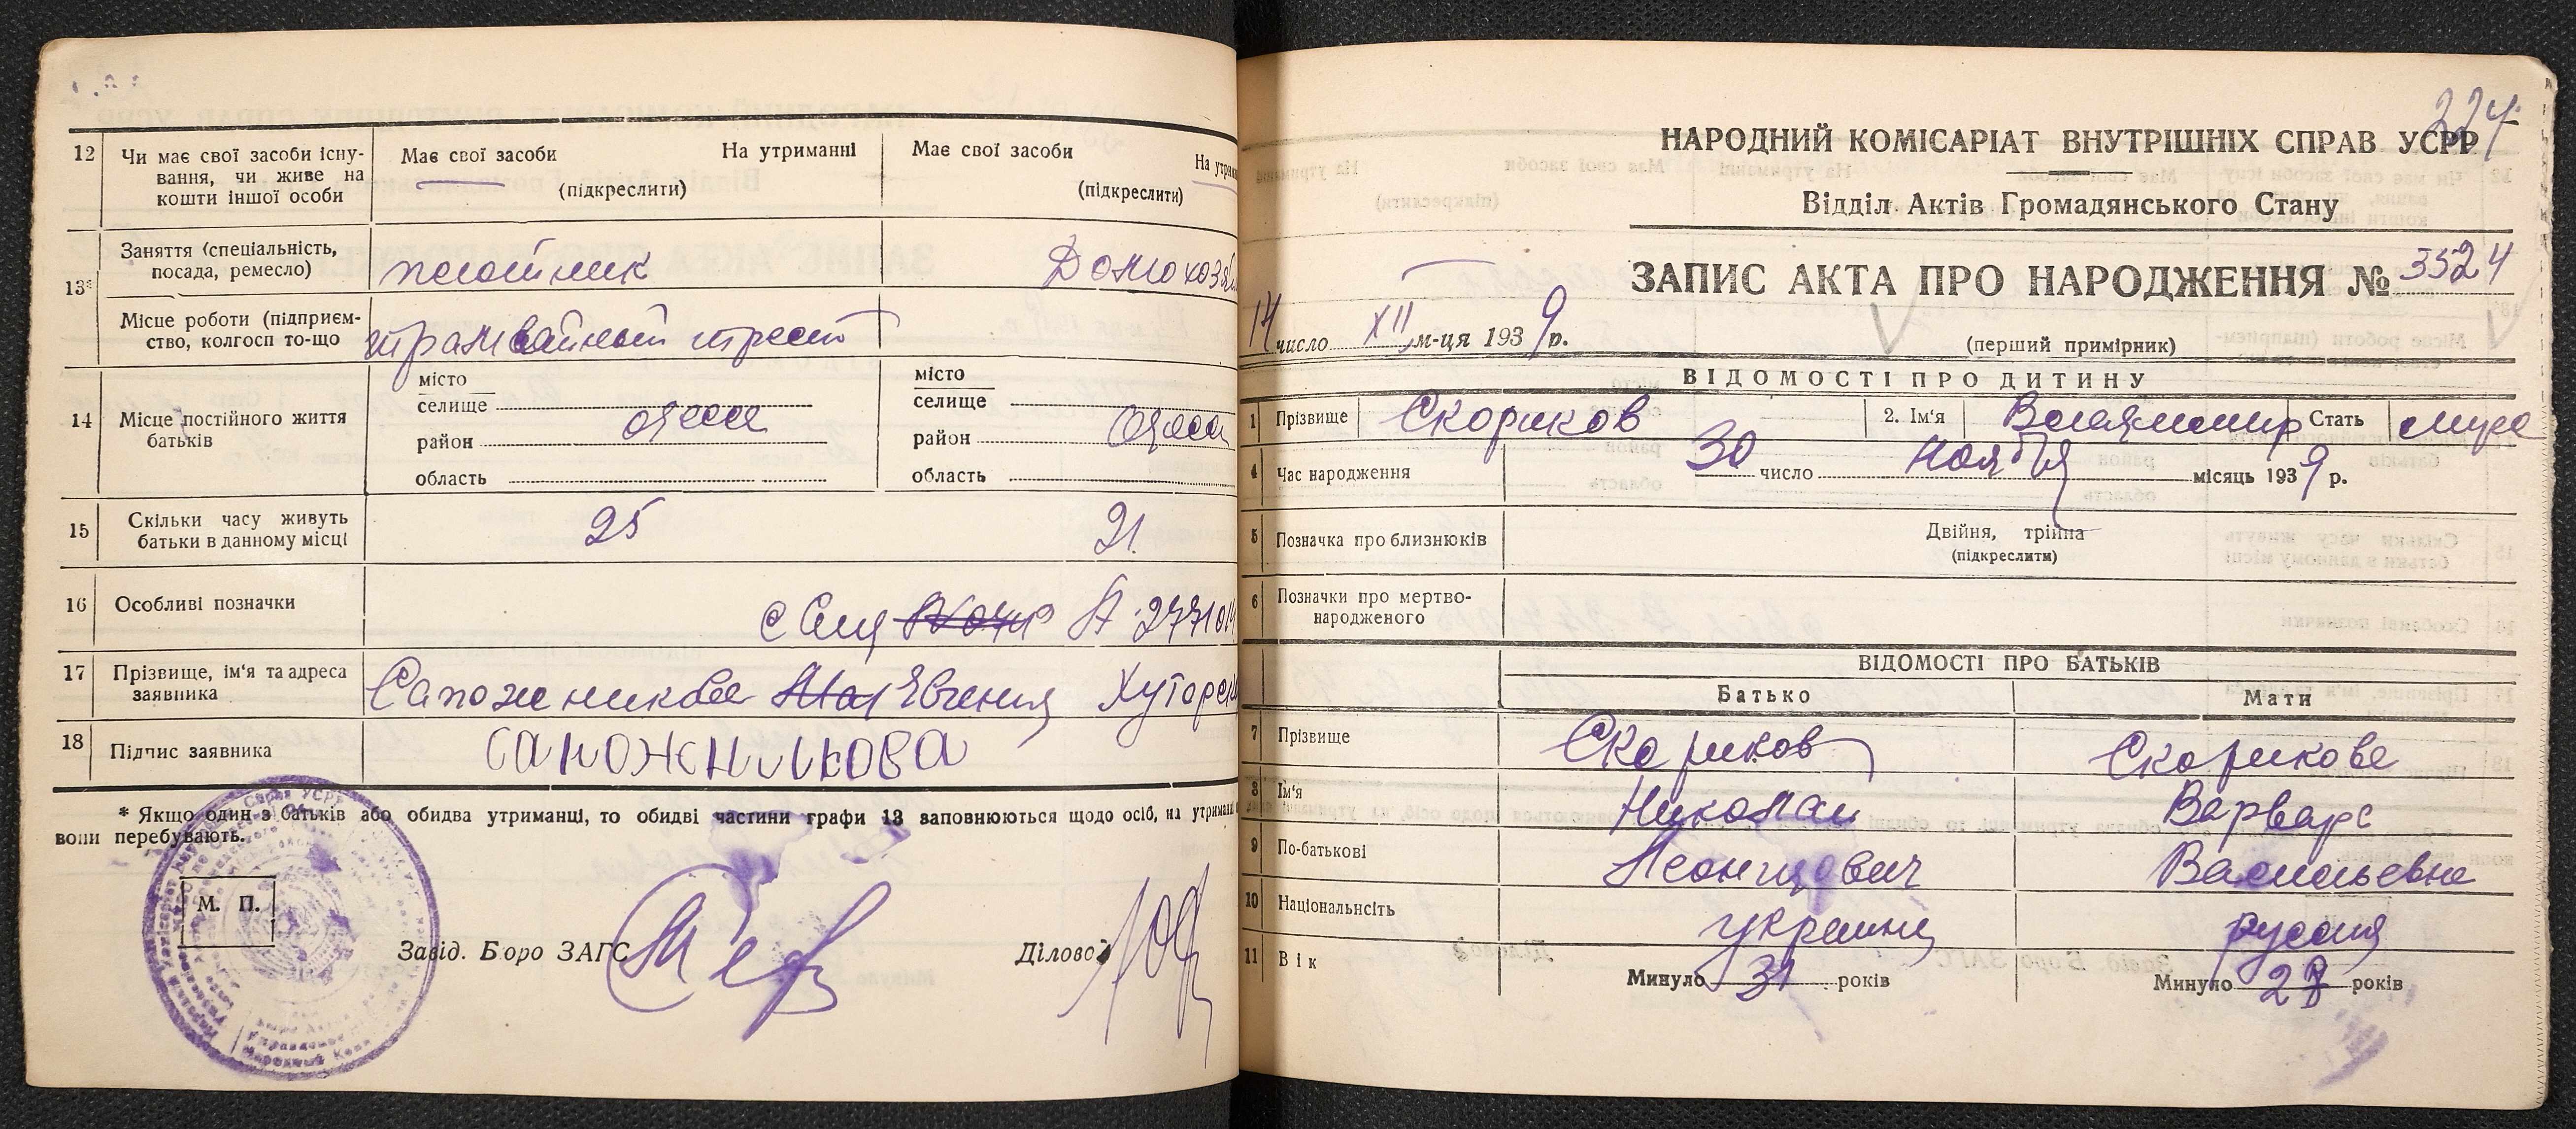 12 Чи має свої засоби існу-
вання, чи живе на
кошти іншої особи
Має свої засоби На утриманні
(підкреслити)
Має свої засоби На утрим
(підкреслити)
13* Заняття (спеціальність,
посада, ремесло)
плотник
Домохозя
Місце роботи (підприєм-
ство, колгосп то-що
трамвайный трест
14 Місце постійного життя
батьків
місто
селище
район Одесса
область
місто
селище
район Одесса
область
15 Скільки часу живуть
батьки в данному місці
25 21
16 Особливі позначки
А 277101
17 Прізвище, ім'я та адреса
заявника
Сапожникова Євгения Хуторск
18 Підпис заявника
Сапожникова
* Якщо один з батьків або обидва утриманці, то обидві частини графи 13 заповнюються щодо осіб, на утриманні
вони перебувають.
М. П.
Завід. Боро ЗАГС Діловод
224
НАРОДНИЙ КОМІСАРІАТ ВНУТРІШНІХ СПРАВ УСРР
Відділ Актів Громадянського Стану
ЗАПИС АКТА ПРО НАРОДЖЕННЯ № 3524
14 число XII м-ця 1939 р.
(перший примірник)
ВІДОМОСТІ ПРО ДИТИНУ
1 Прізвище Скориков 2. Ім'я Владимир Стать муж
4 Час народження 30 число ноября місяць 1939 р.
5 Позначка про близнюків Двійня, трійна
(підкреслити)
6 Позначки про мертво-
народженого
ВІДОМОСТІ ПРО БАТЬКІВ
Батько Мати
7 Прізвище Скориков Скорикова
8 Ім'я Николай Варвара
9 По-батькові Леонтиевич Васильевна
10 Національнсіть украинец русская
11 Вік Минуло 31 років Минуло 27 років